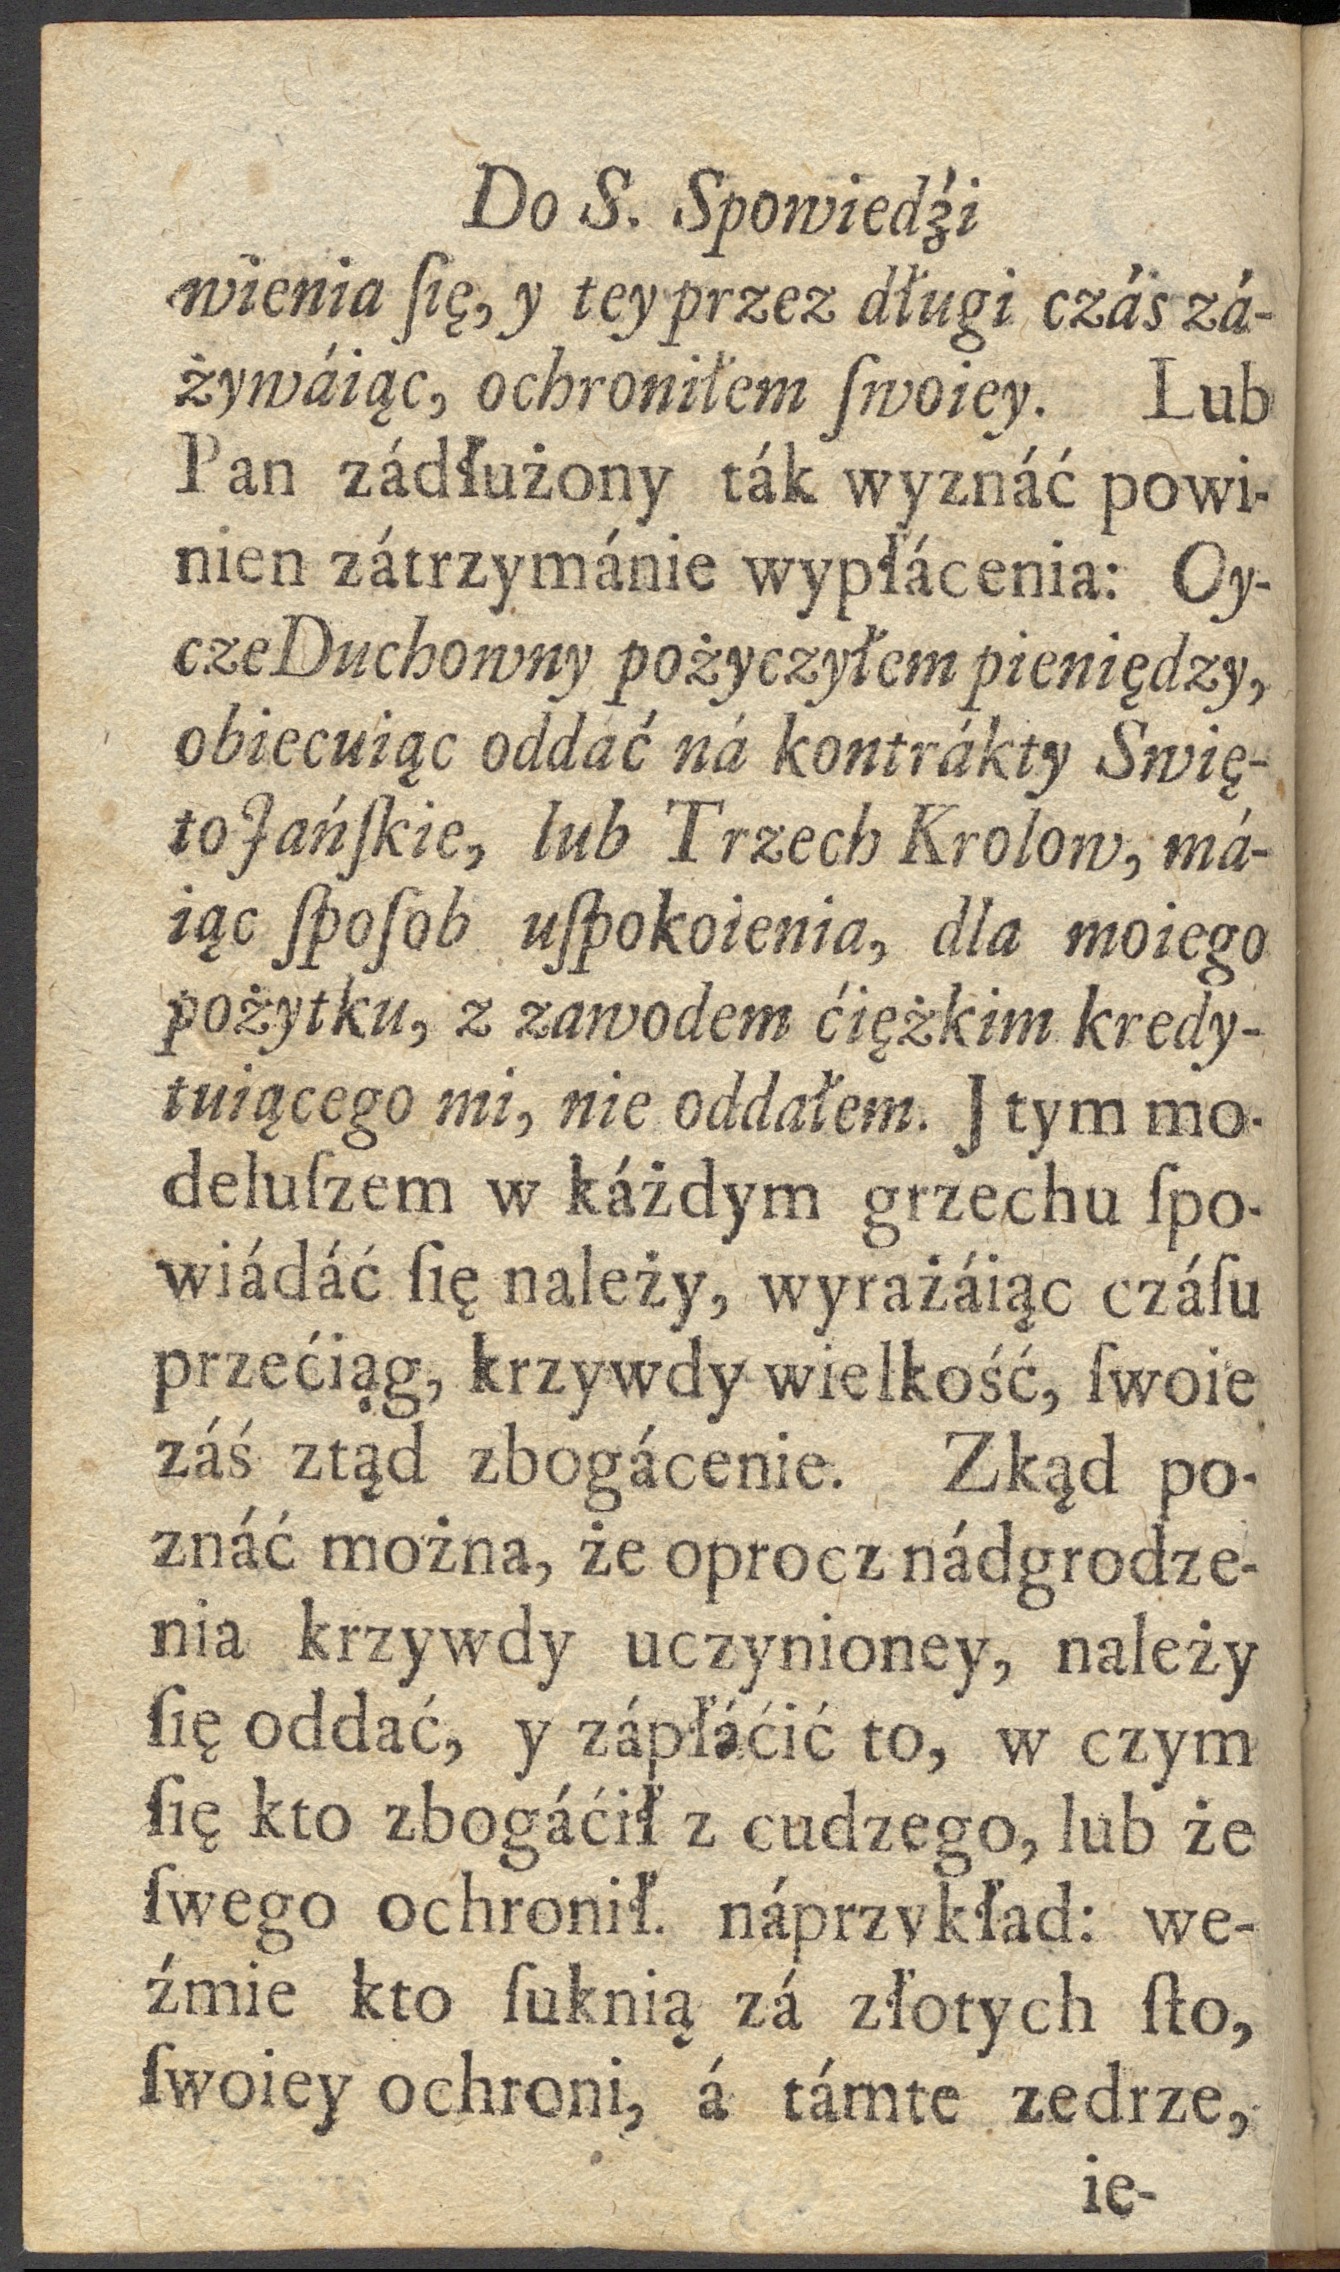 Do S. Spowiedźi
wienia ſię, y tey przez długi czás zá-
żywáiąc, ochroniłem ſwoiey. Lub
Pan zádłużony ták wyznáć powi-
nien zátrzymánie wypłácenia: Oy-
cze Duchowny pożyczyłem pieniędzy,
obiecuiąc oddać ná kontrákty Swię-
to Jańſkie, lub Trzech Krolow, má-
iąc ſpoſob uſpokoienia, dla moiego
pożytku, z zawodem ćiężkim kredy-
tuiącego mi, nie oddałem. J tym mo-
deluſzem w káżdym grzechu ſpo-
wiádáć ſię należy, wyrażáiąc czáſu
przećiąg, krzywdy wielkość, ſwoie
záś ztąd zbogácenie. Zkąd po-
znáć można, że oprocz nádgrodze-
nia krzywdy uczynioney, należy
ſię oddać, y zápłáćić to, w czym
ſię kto zbogáćił z cudzego, lub że
ſwego ochronił. náprzykład: we-
źmie kto ſuknią zá złotych ſto,
ſwoiey ochroni, á támte zedrze,
ie-